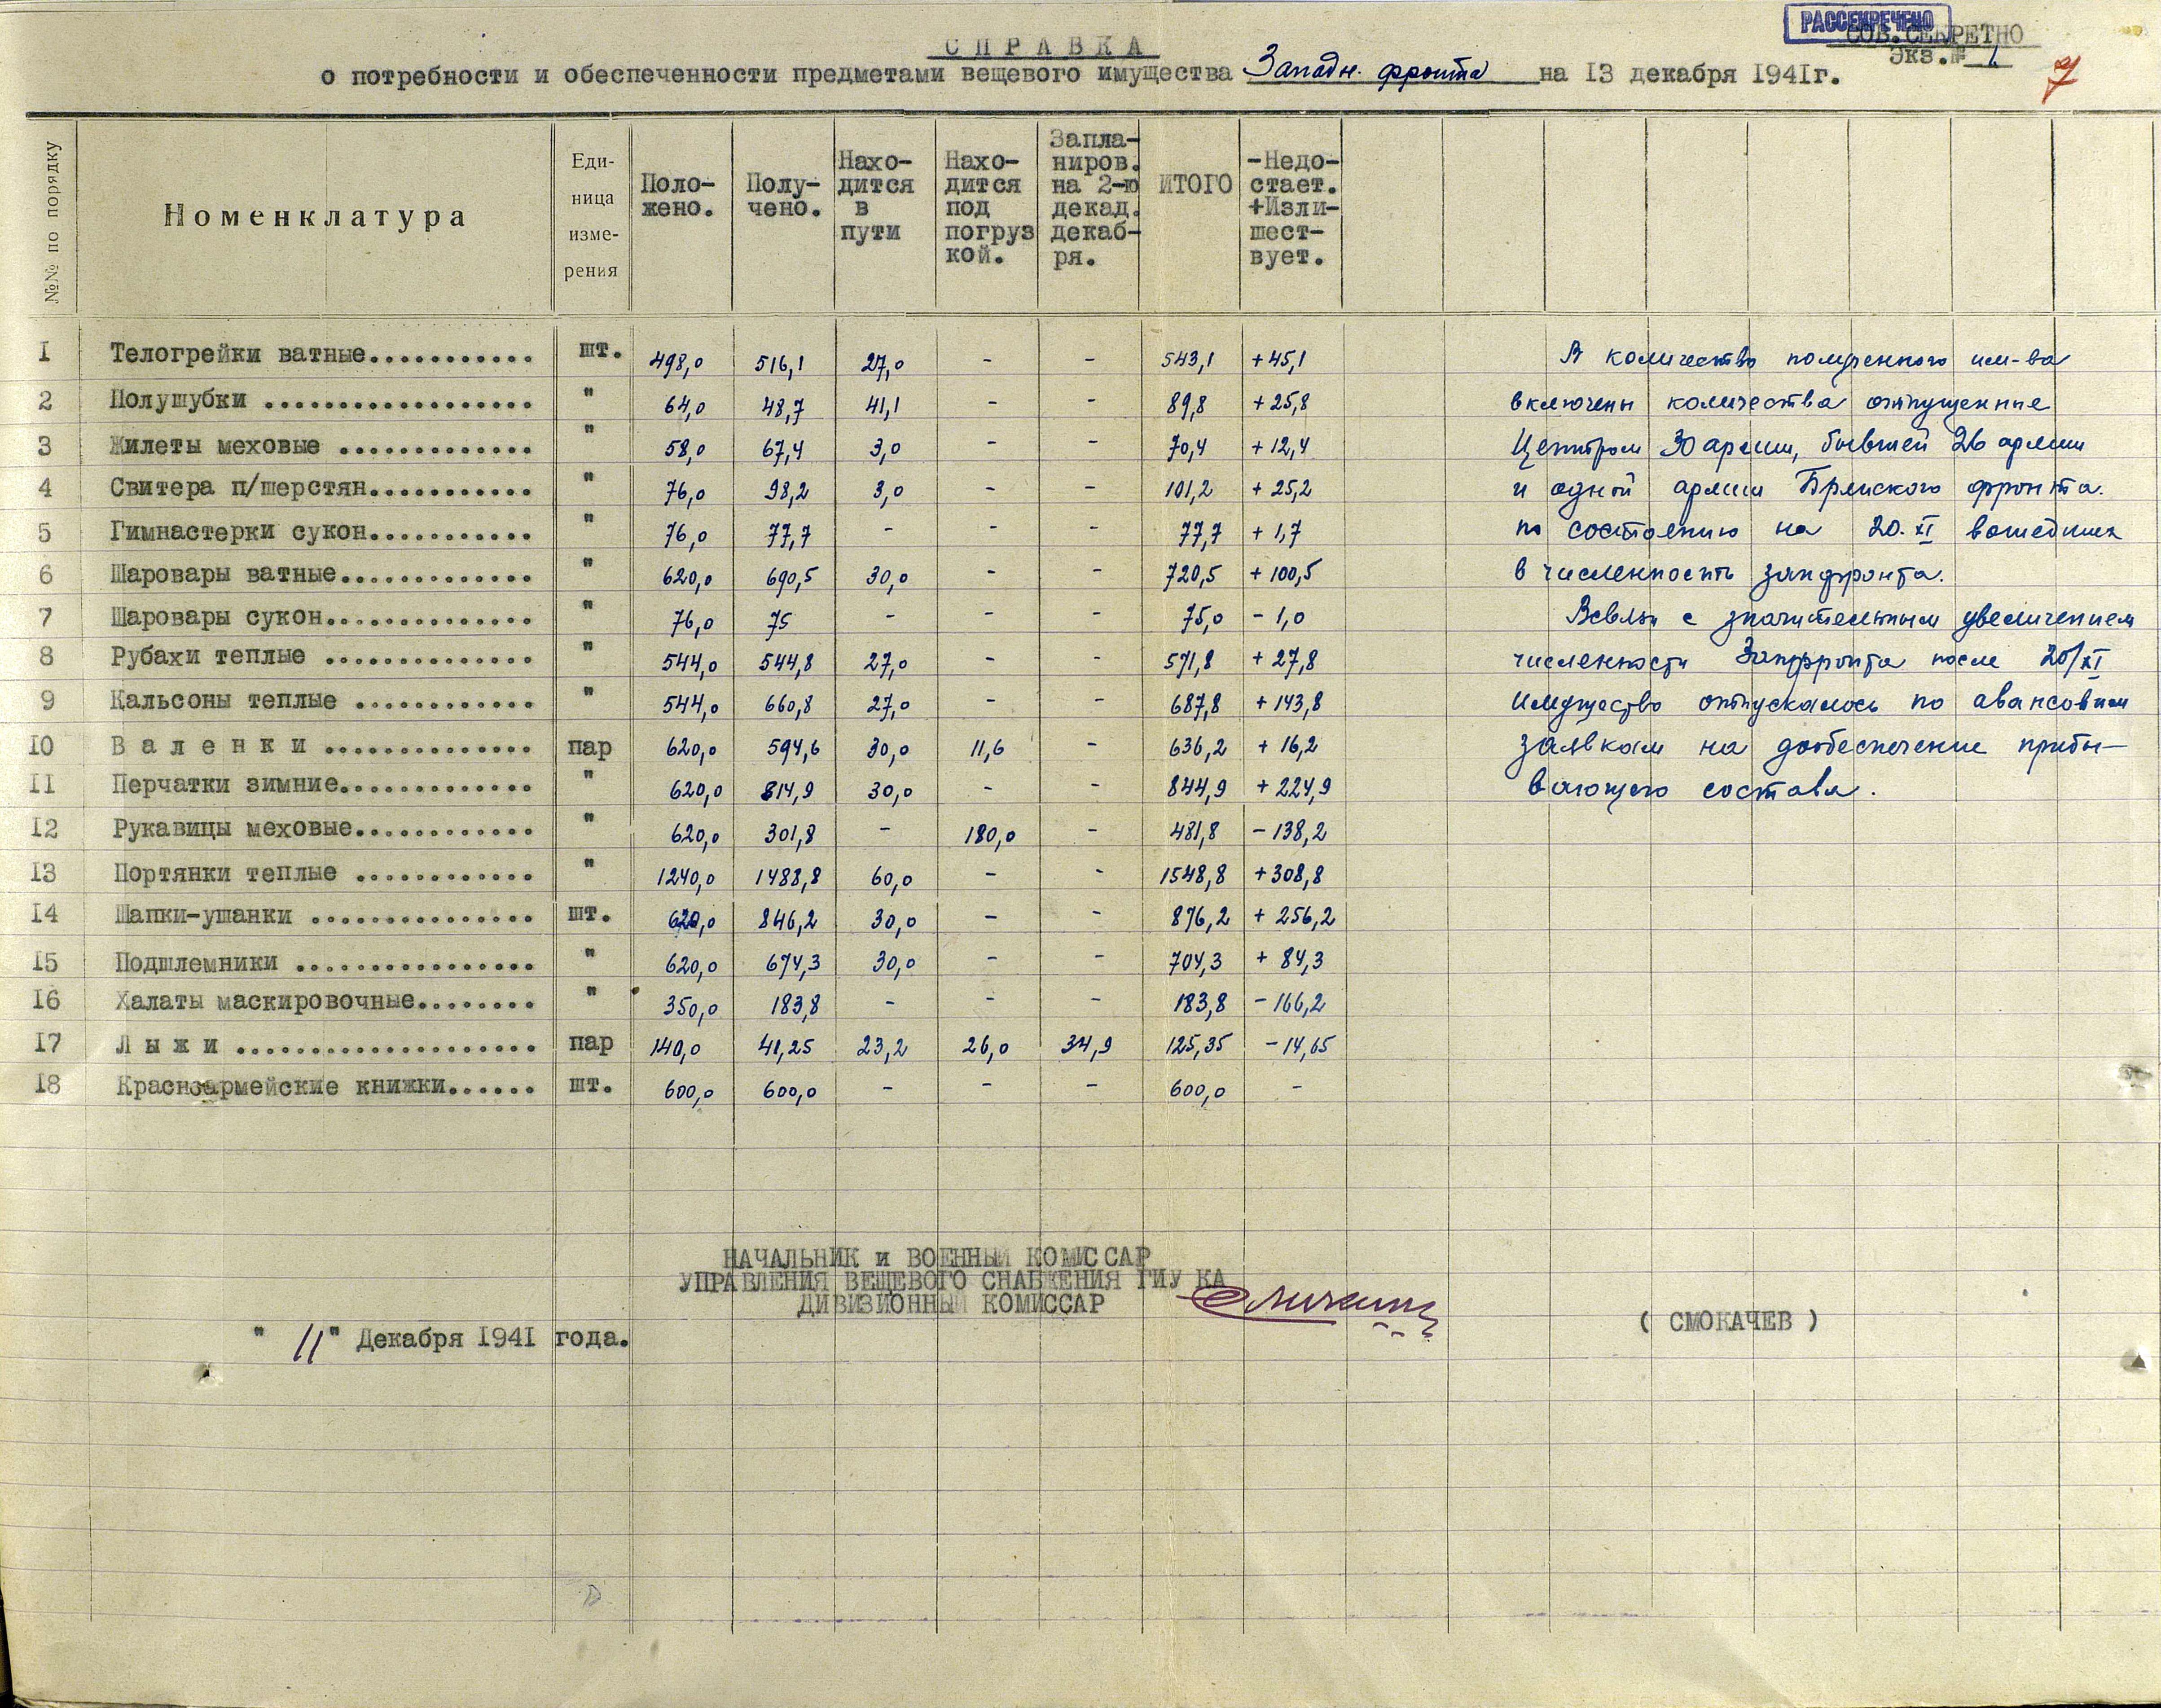 РАССЕКРЕЧЕНО
СОВ.СЕКРЕТНО
Экз.№ 1
7
СПРАВКА
о потребности и обеспеченности предметами вещевого имущества Западн. фронта на 13 декабря 1941г.
№№ по порядку | Номенклатура | Еди-ница изме-рения | Поло-жено. | Полу-чено. | Нахо-дится в пути | Нахо-дится под погруз кой. | Запла-ниров. на 2-ю декад. декаб-ря. | ИТОГО | -Недо-стает. +Изли-шест-вует.
1 Телогрейки ватные........... шт. 498,0 516,1 27,0 - - 543,1 +45,1 В количество полученного им-ва
2 Полушубки .................. " 64,0 48,7 41,1 - - 89,8 +25,8 включены количества отпущенные
3 Жилеты меховые ............. " 58,0 67,4 3,0 - - 70,4 +12,4 Центром 30 армии, бывшей 26 армии
4 Свитера п/шерстян........... " 76,0 98,2 3,0 - - 101,2 +25,2 и одной армии Брянского фронта.
5 Гимнастерки сукон........... " 76,0 77,7 - - - 77,7 +1,7 по состоянию на 20.XI вошедших
6 Шаровары ватные............. " 620,0 690,5 30,0 - - 720,5 +100,5 в численность запфронта.
7 Шаровары сукон.............. " 76,0 75 - - - 75,0 -1,0 Всвязи с значительным увеличением
8 Рубахи теплые .............. " 544,0 544,8 27,0 - - 571,8 +27,8 численности Запфронта после 20/XI
9 Кальсоны теплые ............ " 544,0 660,8 27,0 - - 687,8 +143,8 имущество отпускалось по авансовым
10 Валенки .............. пар 620,0 594,6 30,0 11,6 - 636,2 +16,2 заявкам на дообеспечение прибы-
11 Перчатки зимние............. " 620,0 814,9 30,0 - - 844,9 +224,9 вающего состава.
12 Рукавицы меховые............ " 620,0 301,8 - 180,0 - 481,8 -138,2
13 Портянки теплые ............ " 1240,0 1488,8 60,0 - - 1548,8 +308,8
14 Шапки-ушанки ............... шт. 620,0 846,2 30,0 - - 876,2 +256,2
15 Подшлемники ................ " 620,0 674,3 30,0 - - 704,3 +84,3
16 Халаты маскировочные........ " 350,0 183,8 - - - 183,8 -166,2
17 Лыжи .................... пар 140,0 41,25 23,2 26,0 34,9 125,35 -14,65
18 Красноармейские книжки...... шт. 600,0 600,0 - - - 600,0 -
НАЧАЛЬНИК и ВОЕННЫЙ КОМИССАР
УПРАВЛЕНИЯ ВЕЩЕВОГО СНАБЖЕНИЯ ГИУ КА
ДИВИЗИОННЫЙ КОМИССАР
( СМОКАЧЕВ )
" 11 " Декабря 1941 года.